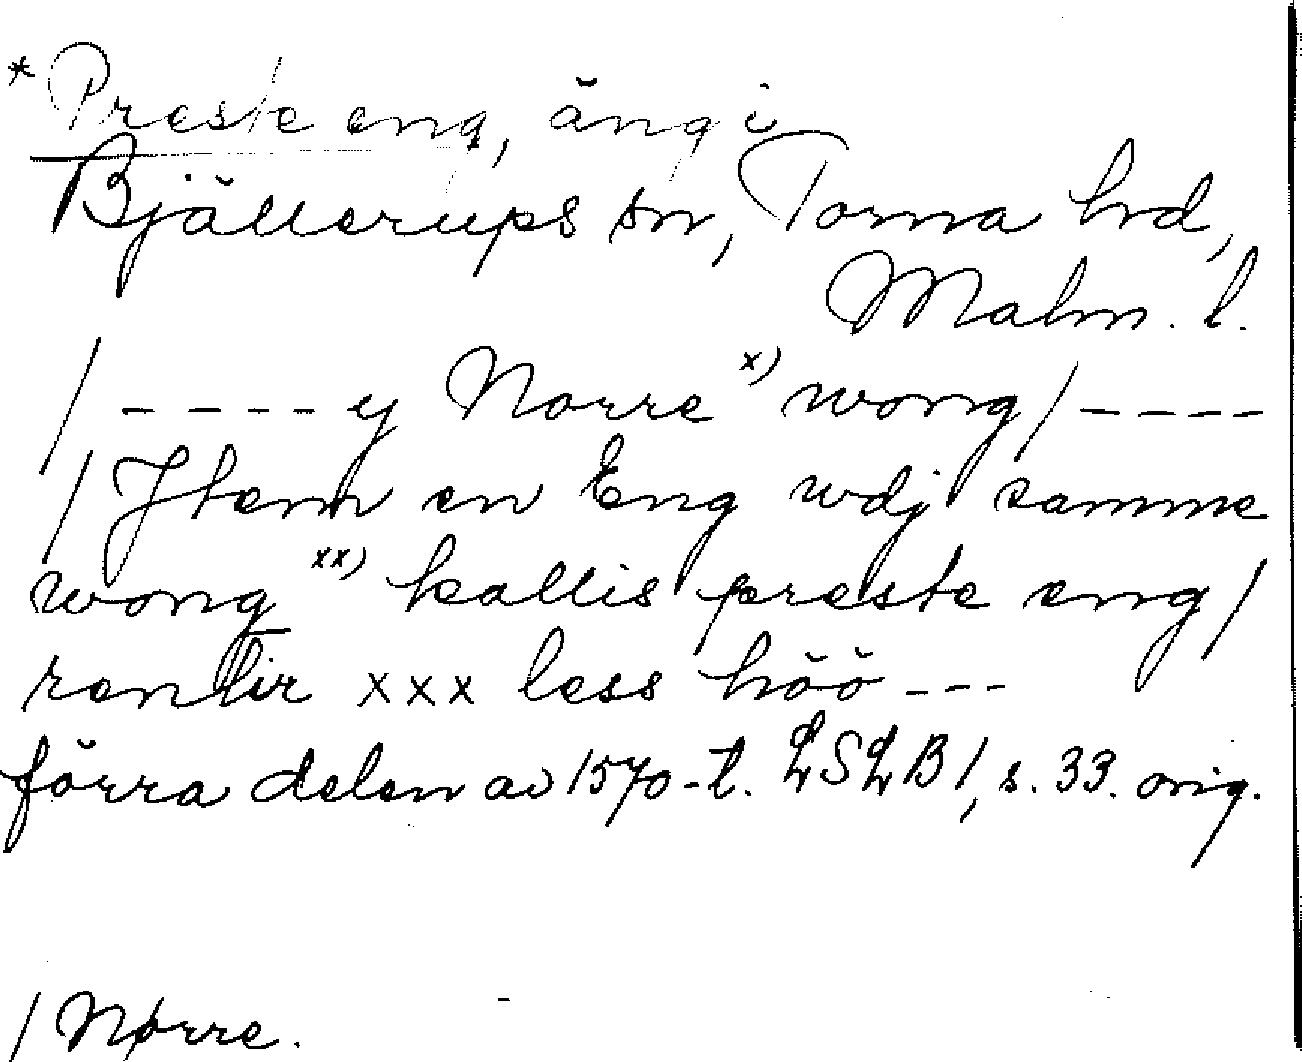 * Preste eng, äng i
Bjällerups sn, Torna hrd,
Malm. l.
/ ----- y Norre x) wong / ----
/ Jtem en Eng wdj samme
wong xx) kallis preste eng /
rentir xxx less höö ---
förra delen av 1570-t. LSLB 1, s. 33. orig.
/ Nørre.